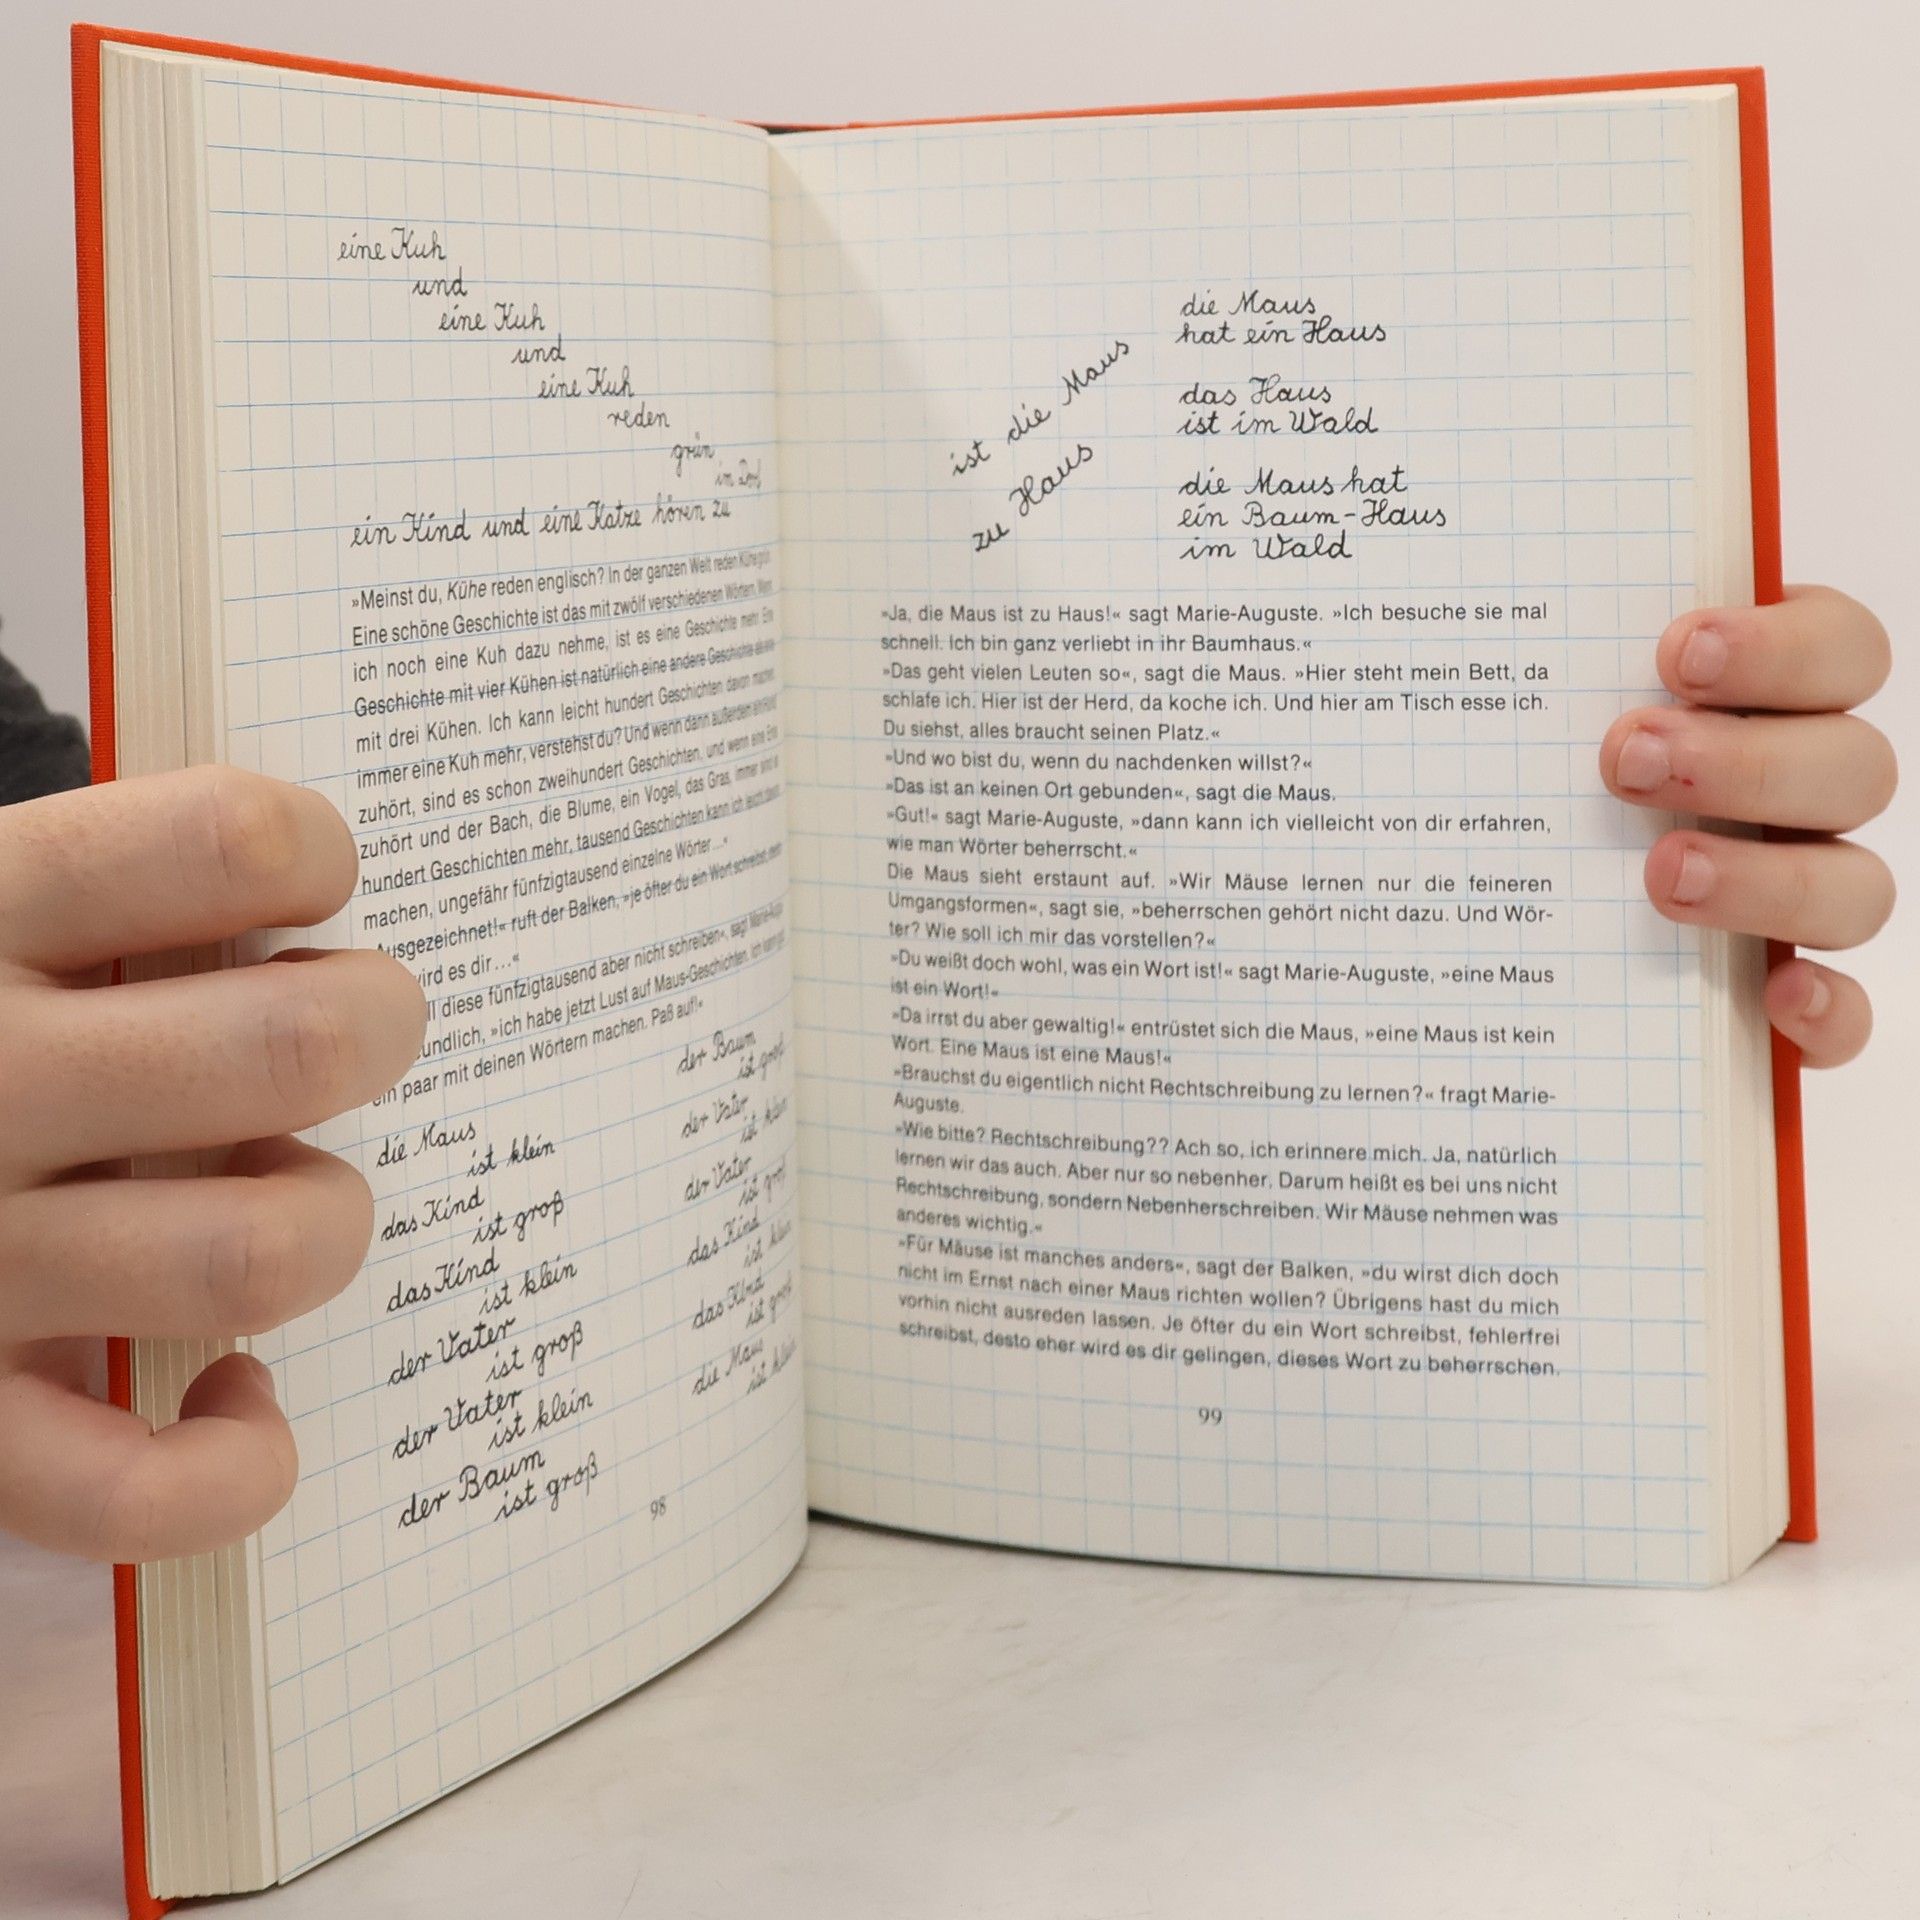 eine Kuh
und
eine Kuh
und
eine Kuh
reden
grün
im Dorf
ein Kind und eine Katze hören zu
»Meinst du, Kühe reden englisch? In der ganzen Welt reden Kühe grün.
Eine schöne Geschichte ist das mit zwölf verschiedenen Wörtern. Wenn
ich noch eine Kuh dazu nehme, ist es eine Geschichte mehr. Eine
Geschichte mit vier Kühen ist natürlich eine andere Geschichte als eine
mit drei Kühen. Ich kann leicht hundert Geschichten davon machen,
immer eine Kuh mehr, verstehst du? Und wenn dann außerdem ein Hund
zuhört, sind es schon zweihundert Geschichten, und wenn eine Ente
zuhört und der Bach, die Blume, ein Vogel, das Gras, immer sind es
hundert Geschichten mehr, tausend Geschichten kann ich leicht davon
machen, ungefähr fünfzigtausend einzelne Wörter ...«
Ausgezeichnet!« ruft der Balken, »je öfter du ein Wort schreibst, desto
wird es dir ...«
diese fünfzigtausend aber nicht schreiben«, sagt Marie-Auguste
»ich habe jetzt Lust auf Maus-Geschichten, ich kann
ein paar mit deinen Wörtern machen. Paß auf!«
die Maus
ist klein
das Kind
ist groß
das Kind
ist klein
der Vater
ist groß
der Vater
ist klein
der Baum
ist groß
der Baum
ist groß
der Vater
ist klein
der Vater
ist groß
das Kind
ist klein
das Kind
ist groß
die Maus
ist klein
98
ist die Maus
zu Haus
die Maus
hat ein Haus
das Haus
ist im Wald
die Maus hat
ein Baum-Haus
im Wald
»Ja, die Maus ist zu Haus!« sagt Marie-Auguste. »Ich besuche sie mal
schnell. Ich bin ganz verliebt in ihr Baumhaus.«
»Das geht vielen Leuten so«, sagt die Maus. »Hier steht mein Bett, da
schlafe ich. Hier ist der Herd, da koche ich. Und hier am Tisch esse ich.
Du siehst, alles braucht seinen Platz.«
»Und wo bist du, wenn du nachdenken willst?«
»Das ist an keinen Ort gebunden«, sagt die Maus.
»Gut!« sagt Marie-Auguste, »dann kann ich vielleicht von dir erfahren,
wie man Wörter beherrscht.«
Die Maus sieht erstaunt auf. »Wir Mäuse lernen nur die feineren
Umgangsformen«, sagt sie, »beherrschen gehört nicht dazu. Und Wör-
ter? Wie soll ich mir das vorstellen?«
»Du weißt doch wohl, was ein Wort ist!« sagt Marie-Auguste, »eine Maus
ist ein Wort!«
»Da irrst du aber gewaltig!« entrüstet sich die Maus, »eine Maus ist kein
Wort. Eine Maus ist eine Maus!«
»Brauchst du eigentlich nicht Rechtschreibung zu lernen?« fragt Marie-
Auguste.
»Wie bitte? Rechtschreibung?? Ach so, ich erinnere mich. Ja, natürlich
lernen wir das auch. Aber nur so nebenher. Darum heißt es bei uns nicht
Rechtschreibung, sondern Nebenherschreiben. Wir Mäuse nehmen was
anderes wichtig.«
»Für Mäuse ist manches anders«, sagt der Balken, »du wirst dich doch
nicht im Ernst nach einer Maus richten wollen? Übrigens hast du mich
vorhin nicht ausreden lassen. Je öfter du ein Wort schreibst, fehlerfrei
schreibst, desto eher wird es dir gelingen, dieses Wort zu beherrschen.
99